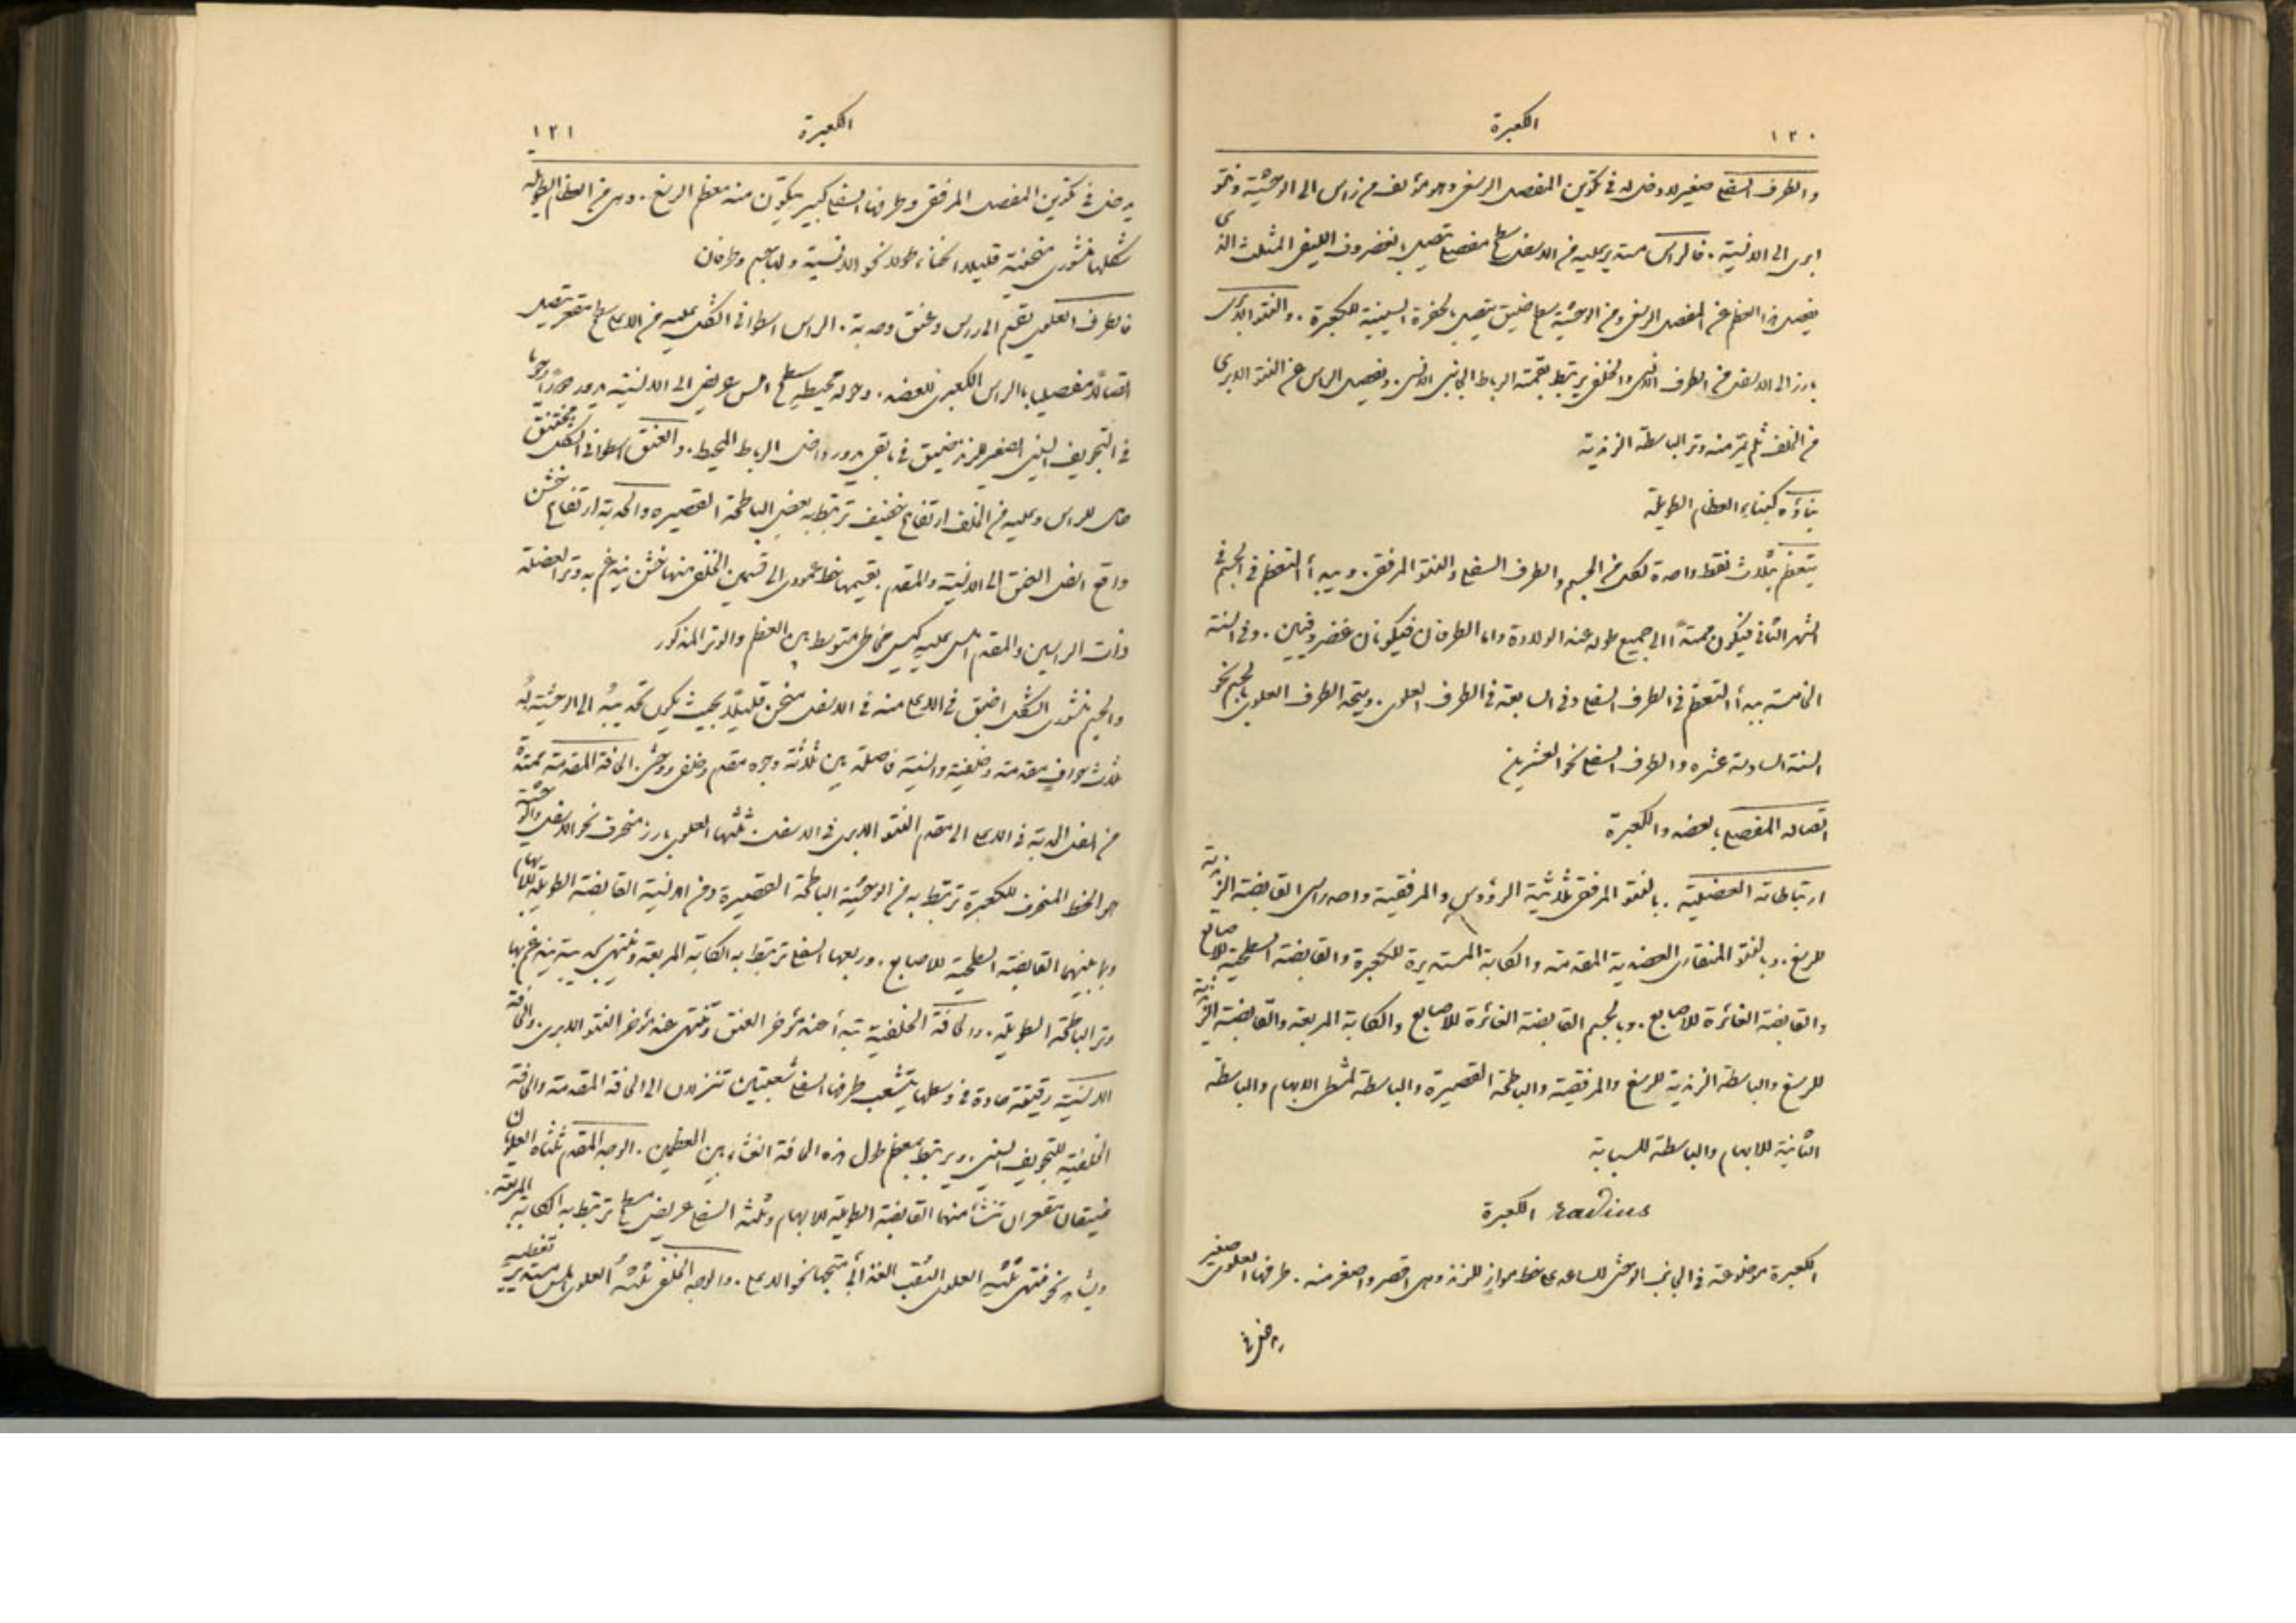 ١٢٠
الكعبرة
والطرف السفلي صغير لا دخل له في تكوين المفصل الرسغي وهو مؤلف من راس الى الوحشية ونتو
ابرى الى الانسية . فالراس مستدير يليه من الاسفل سطح مفصلي يتصل بالغضروف الليفي المثلث الذى
يفصل هذا العظم عن المفصل الرسغي ومن الوحشية سطح ضيق يتصل بالحفرة السينية للكعبرة . والنتو الابرى
بارز الى الاسفل من الطرف الانسي والخلفي يرتبط بقمته الرباط الجانبي الانسي . ويفصل الراس عن النتو الابرى
من الخلف ثلم يمر منه وتر الباسطة الزندية
بناؤه كبناء العظام الطويلة
يتعظم بثلاث نقط واحدة لكل من الجسم والطرف السفلي والنتو المرفقي . ويبدأ التعظم في الجسم في
الشهر الثاني فيكون ممتدًا الى جميع طوله عند الولادة واما الطرفان فيكونان غضروفيين . وفي السنة
الخامسة يبدأ التعظم في الطرف السفلي وفي السابعة في الطرف العلوى . ويتحد الطرف العلوى بالجسم نحو
السنة السادسة عشره والطرف السفلي نحو العشرين
اتصاله المفصلي بالعضد والكعبرة
ارتباطاته العضلية . بالنتو المرفقي ثلاثية الرؤوس والمرفقية واحد راسى القابضة الزندية
للرسغ . وبالنتو المنقارى العضدية المقدمة والكابة المستديرة للكعبرة والقابضة السطحية للاصابع
والقابضة الغائرة للاصابع . وبالجسم القابضة الغائرة للاصابع والكابة المربعة والقابضة الزندية
للرسغ والباسطة الزندية للرسغ والمرفقية والباطحة القصيرة والباسطة لمشط الابهام والباسطة
الثانية للابهام والباسطة للسبابة
radius الكعبرة
الكعبرة موضوعة في الجانب الوحشى للساعد على خط مواز للزند وهى اقصر واصغر منه . طرفها العلوى صغير
يدخل في
الكعبرة
١٢١
يدخل في تكوين المفصل المرفقي وطرفها السفلي كبير يتكون منه معظم الرسغ . وهى من العظام الطويله
شكلها منشورى منحنية قليلا انحناء طولا نحو الانسية ولها جسم وطرفان
فالطرف العلوى يقسم الى راس وعنق وحدبة . الراس اسطوانى الشكل يليه من الاعلى سطح مقعر يتصل
اتصالا مفصليا بالراس الكعبرى للعضد . وحوله محيط سطح املس عريض الى الانسية يدور
في التجويف السيني الصغير للزند ضيق في باقى يدور داخل الرباط المحيط . والعنق اسطوانى الشكل مختنق
حامل للراس ويليه من الخلف ارتفاع خفيف ترتبط به بعض الباطحة القصيره والحدبة ارتفاع خشن
واقع اسفل العنق الى الانسية والمقدم يقسمها خط عمودى الى قسمين الخلفى منها خشن يندغم به وتر العضلة
ذات الراسين والمقدم املس يليه كيس مخاطى متوسط بين العظم والوتر المذكور
والجسم منشورى الشكل اضيق في الاعلى منه في الاسفل منحن قليلا بحيث يكون تحديبه الى الوحشية له
ثلاث حواف مقدمة وخلفية وانسية فاصلة بين ثلاثة وجوه مقدم وخلفى ووحشى . الحافة المقدمة ممتدة
من اسفل الحدبة في الاعلى الى مقدم النتو الابرى في الاسفل . ثلثها العلوى بارز منحرف نحو الاسفل والوحشية
هو الخط المنحرف للكعبرة ترتبط به من الوحشية الباطحة القصيرة ومن الانسية القابضة الطويلة للابهام
وبما بينهما القابضة السطحية للاصابع . وربعها السفلي ترتبط به الكابة المربعة وتنتهى بحديبة يندغم بها
وتر الباطحة الطويلة . والحافة الخلفية تبتدأ عند مؤخر العنق وتنتهى عند مؤخر النتو الابرى . والحافة
الانسية رقيقة حادة في وسطها يتشعب طرفها السفلي شعبتين تنزلان الى الحافة المقدمة والحافة
الخلفية للتجويف السيني . ويرتبط بمعظم طول هذه الحافة الغشاء بين العظمين . الوجه المقدم ثلثاه العلويان
ضيقان مقعران تنشأ منهما القابضة الطويلة للابهام وثلثه السفلي عريض مسطح ترتبط به الكابة المربعة .
ويشاهد نحو منتهى ثلثيه العلوى الثقب الغذائى متجها نحو الاعلى . والوجه الخلفى ثلثه العلوى املس مستدير تغطيه